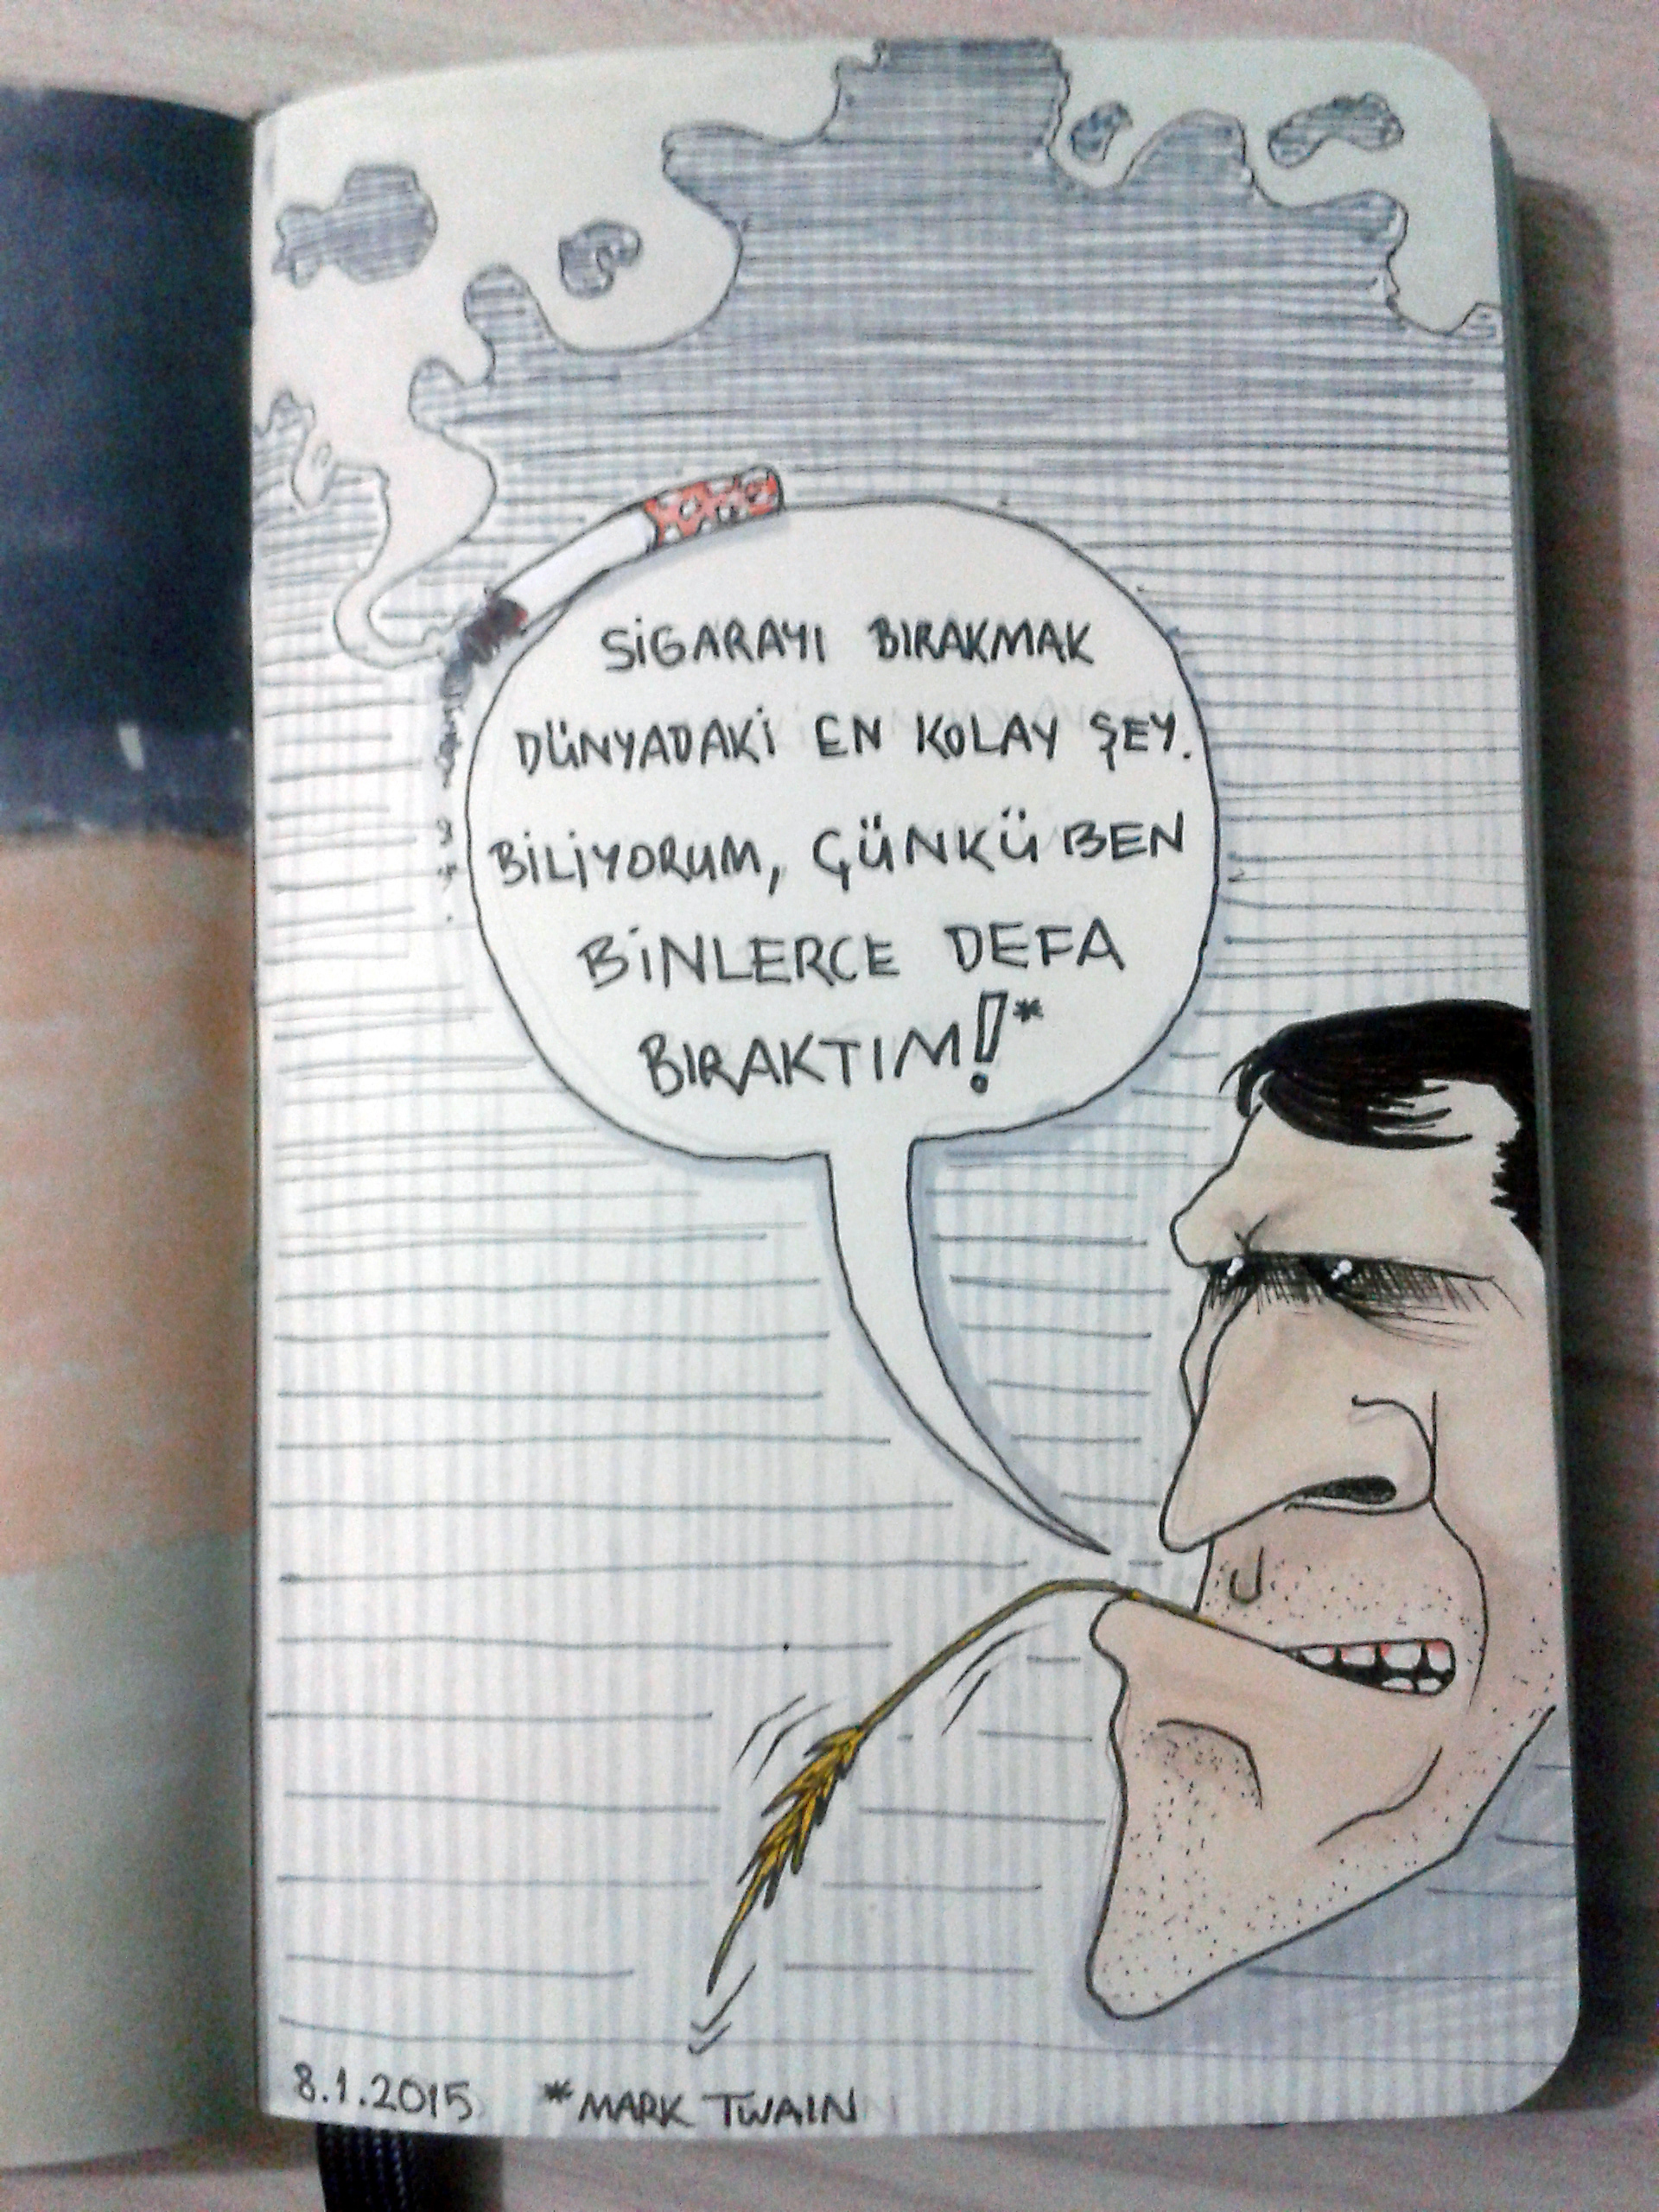 SİGARAYI BIRAKMAK
DÜNYADAKİ EN KOLAY ŞEY.
BİLİYORUM, ÇÜNKÜ BEN
BİNLERCE DEFA
BIRAKTIM!*
8.1.2015 *MARK TWAIN